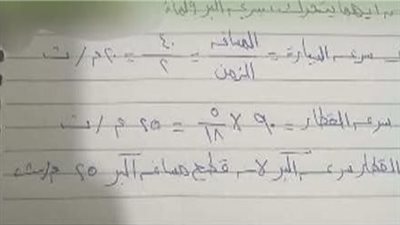 أيهما يتحرك بسرعة أكبر ولماذا
سرعة السيارة = المسافة / الزمن = ٤٠ / ٢ = ٢٠ م/ث
سرعة القطار = ٩٠ × ٥ / ١٨ = ٢٥ م/ث
القطار سرعته أكبر لأنه قطع مسافة أكبر ٢٥ م/ث